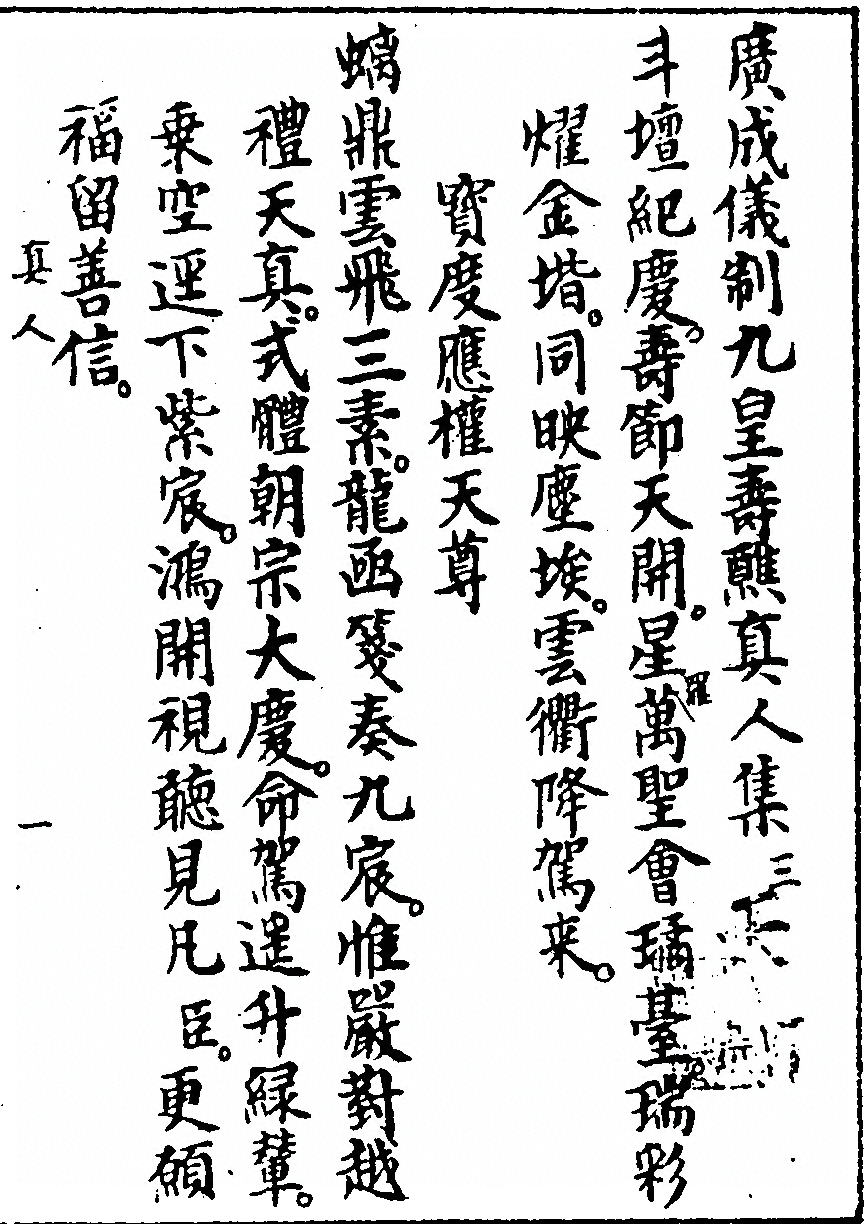 廣成儀制九皇壽醮真人集三
斗壇紀慶。壽節天開。星羅萬聖會璚臺瑞彩
燿金堦。同映塵埃。雲衢降駕来。
寳度應權天尊
螭鼎雲飛三素。龍函箋奏九宸。惟嚴對越
禮天真。式體朝宗大慶。命駕遥升緑輦。
乗空逕下紫宸。鴻開視聽見凡臣。更願
福留善信。
真人
一